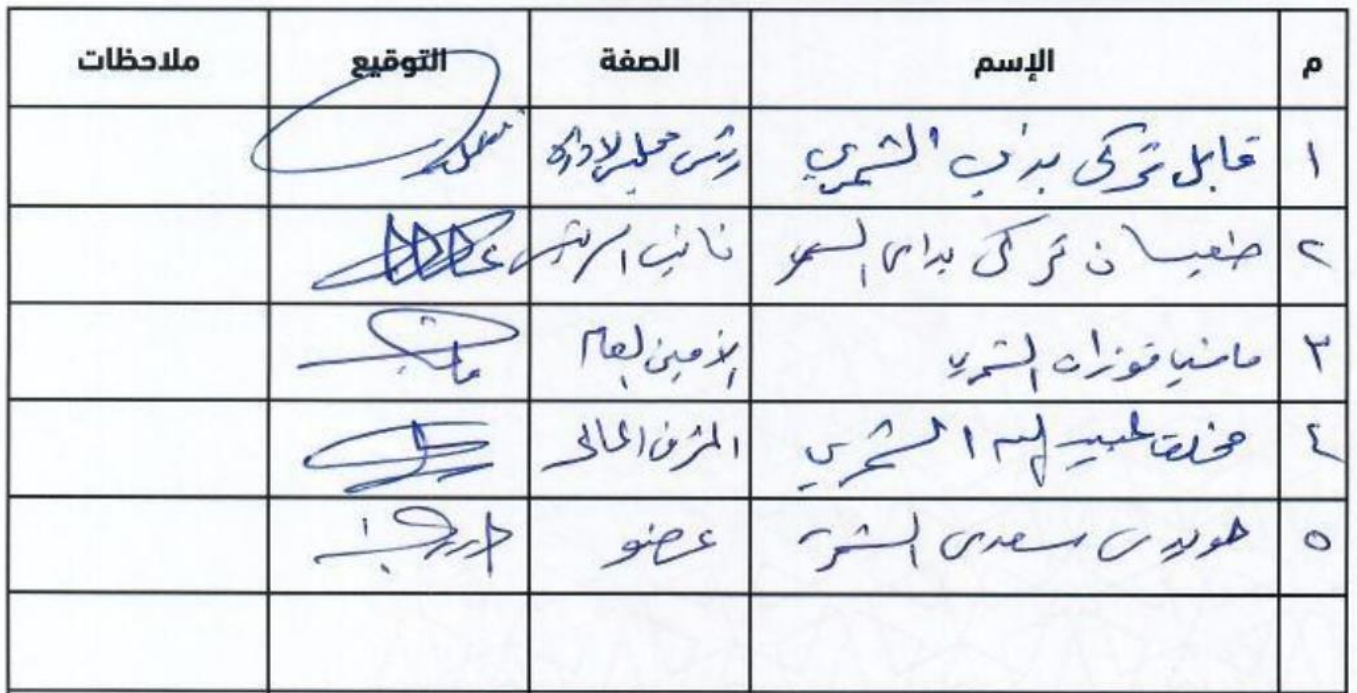 م الإسم الصفة التوقيع ملاحظات
١ قابل تركي بداي الشمري رئيس مجلس الإدارة
٢ طعيسان تركي بداي الشمري نائب الرئيس
٣ ماضي فوزان الشمري الأمين العام
٤ مخلف عبيد الشمري المشرف المالي
٥ هويدي سعدي الشمري عضو